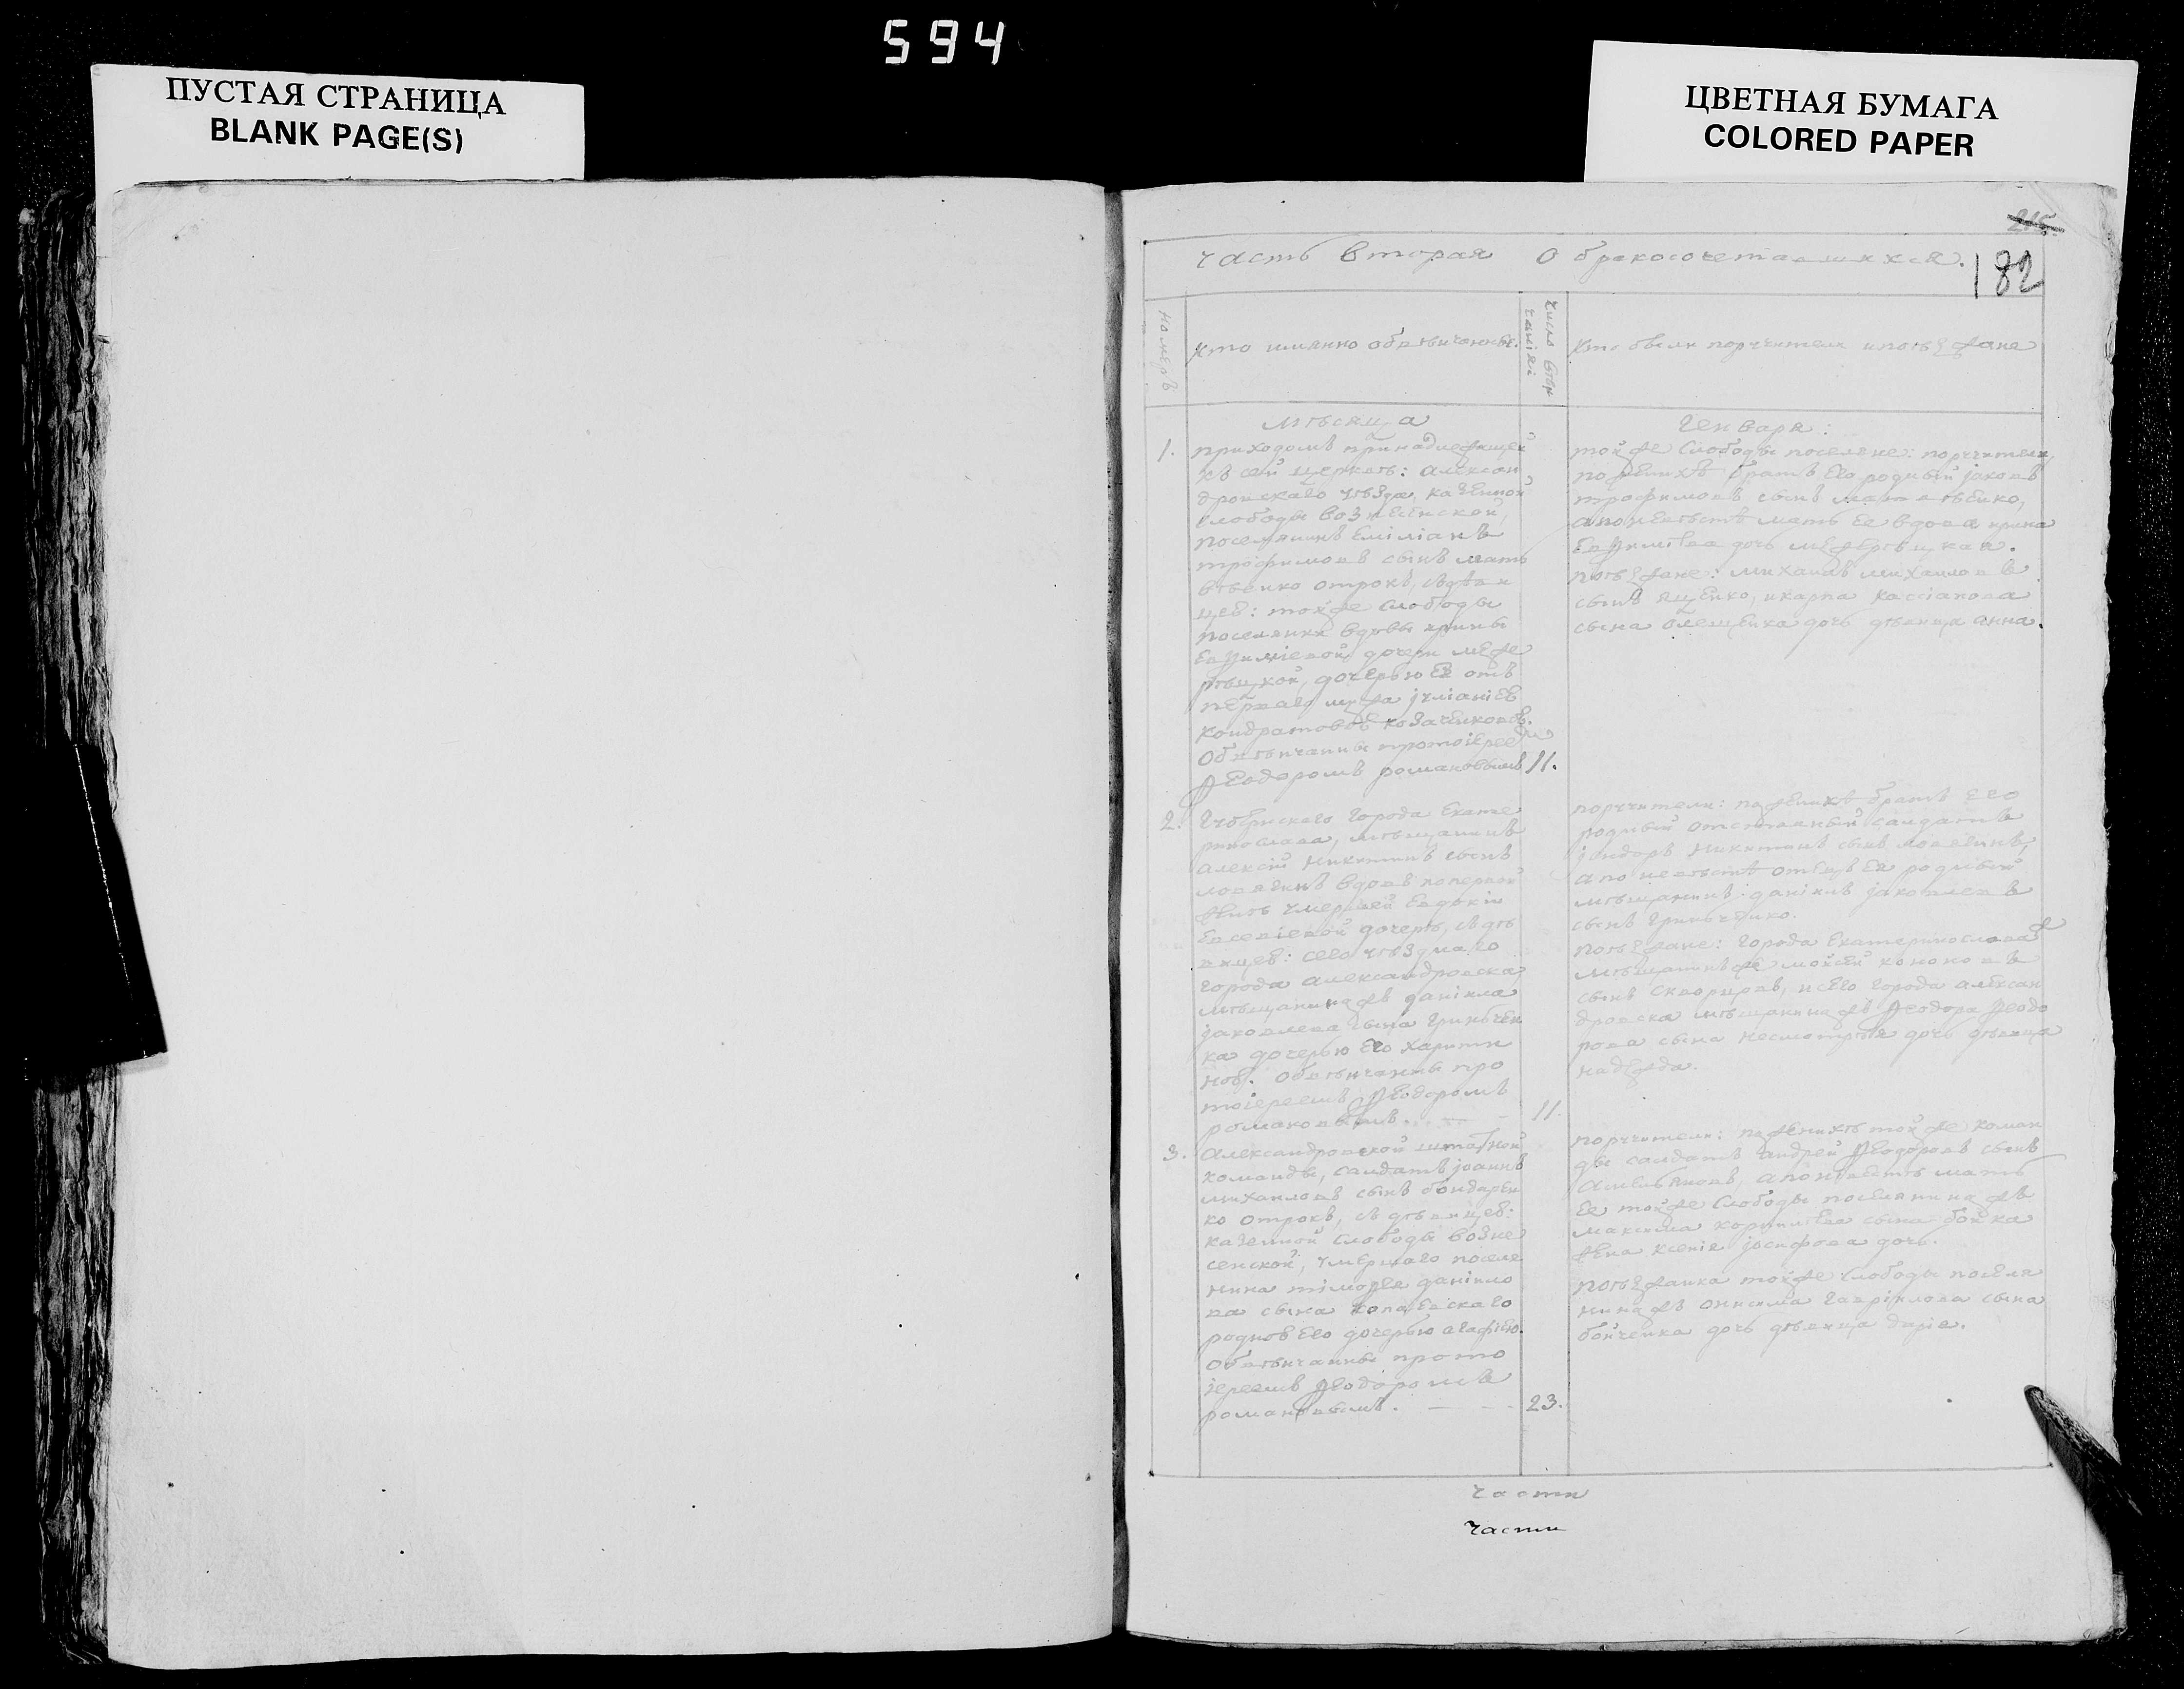 594
ПУСТАЯ СТРАНИЦА
BLANK PAGE(S)
ЦВЕТНАЯ БУМАГА
COLORED PAPER
215.
182
часть вторая О бракосочетавшихся.
номеръ
кто имянно обвѣнчанные.
число вѣнчанiй
кто были поручители и поѣзжане
мѣсяца
Генваря:
1.
приходомъ принадлежащей
къ сей церквѣ: алексан
дровскаго уѣзда, казенной
слободы вознесенской,
поселянинъ Емилiанъ
трофимовъ сынъ матв
ѣенко отрокъ, съ дѣви
цею: тойже слободы
поселянки вдовы ирины
дочерью Ея отъ
перваго мужа iулiанiею
кондратовою козаченковою.
Обвѣнчанны протоiереем
Ѳеодоромъ романовымъ 11.
тойже Слободы поселяне: поручители
по женихѣ братъ Его родный iаковъ
трофимовъ сынъ матвѣенко,
а по невѣстѣ мать Ея вдова ирина
дочь
поѣзжане: михаилъ михаиловъ
сынъ яценко, и карпа кассiанова
сына олещенка дочь дѣвица анна.
2.
Губернскаго города Екате
ринослава, мѣщанинъ
алексiй никитинъ сынъ
вдовъ по первой
женѣ умершей Евдокiи
дочерѣ, съ дѣ
вицею: сего уѣзднаго
города александровска
мѣщанина жъ данiила
iаковлева сына гринчен
ка дочерью Его харити
ною. Обвѣнчанны про
тоiереемъ Ѳеодоромъ
романовымъ. 11.
поручители: по женихѣ братъ его
родный отставный салдатъ
никитинъ сынъ
а по невѣстѣ отецъ Ея родный
мѣщанинъ: данiилъ iаковлевъ
сынъ гринченко.
поѣзжане: города Екатеринослава
мѣщанинъ же моисей кононовъ
сынъ скворцовъ, и сего города алексан
дровска мѣщанина жъ Ѳеодора Ѳеодо
рова сына дочь дѣвица
надежда.
3.
Александровской штатной
команды, салдатъ iоаннъ
михаиловъ сынъ бондарен
ко отрокъ, съ дѣвицею:
казенной слободы возне
сенской, умершаго поселя
нина тiмоѳея данiило
ва сына
родною Его дочерью агафiею.
Обвѣнчанны прото
iереемъ Ѳеодоромъ
романовымъ. 23.
поручители: по женихѣ тойже коман
ды салдатъ андрей Ѳеодоровъ сынъ
а по невѣстѣ мать
Ея тойже Слободы поселянина жъ
максима сына бойка
жена ксенiя iосифова дочь.
поѣзжанка тойже слободы поселя
нина жъ онисима гаврiилова сына
бойченка дочь дѣвица дарiя.
части
части